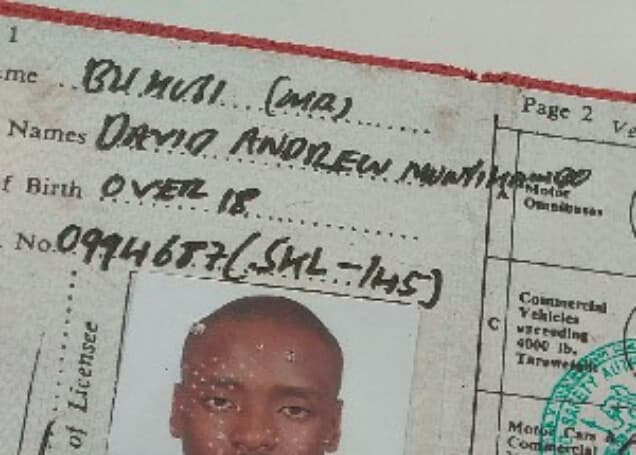 1
me BUHUSI (MR)
Names DAVID ANDREW
f Birth OVER 18
No. 0994687 (SHL-145)
of Licensee
Page 2
A Motor Omnibuses
C Commercial
Vehicles
exceeding
4000 lb.
Tareweight
Motor Cars &
Commercial
SAFETY